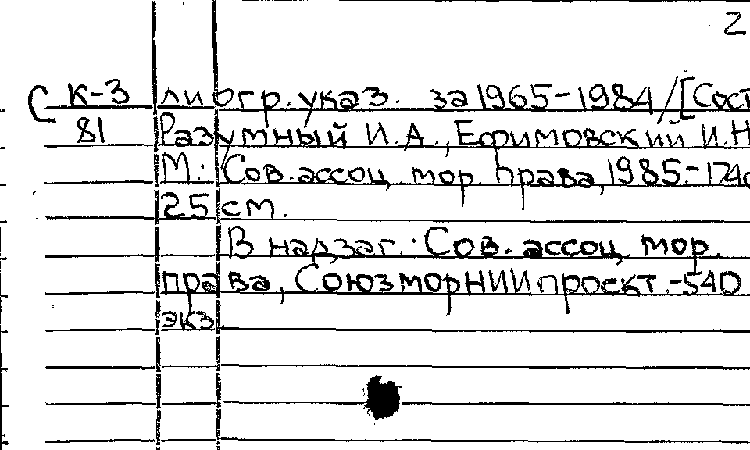 2
С К-3 лиогр. указ. за 1965-1984/[Сост
81 Разумный И.А., Ефимовский И.Н
М.: Сов. ассоц. мор. права, 1985.-174с
25 см.
В надзаг.: Сов. ассоц. мор.
права, СоюзморНИИпроект.-540
экз